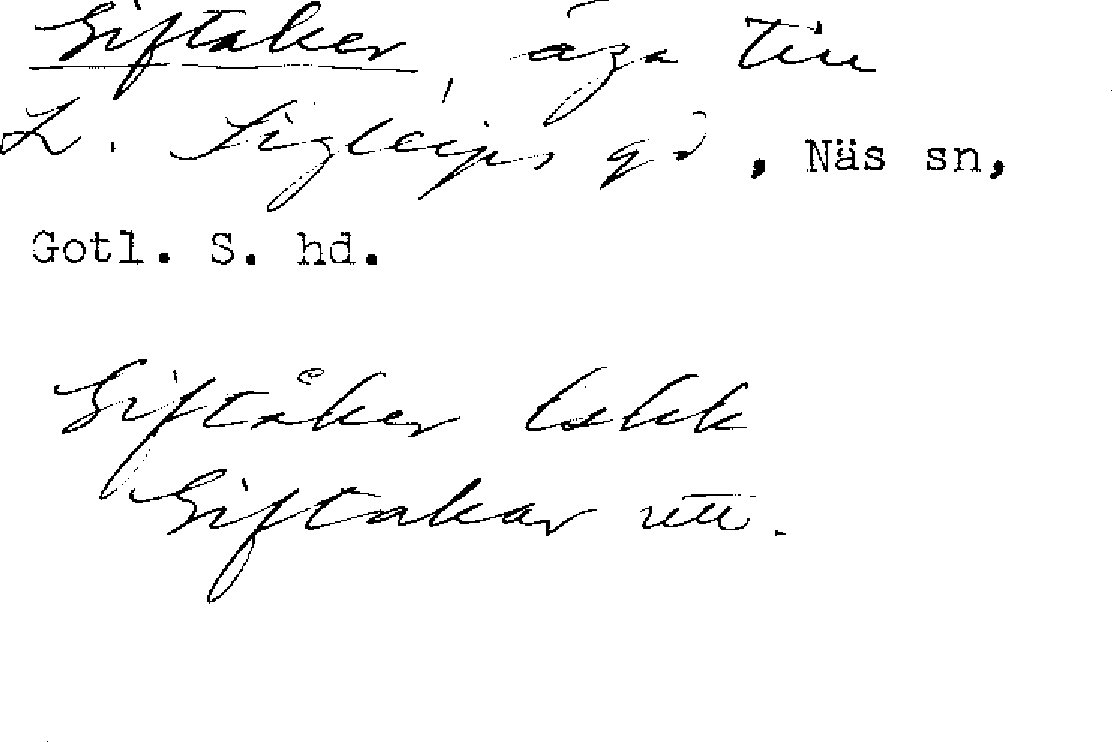 Giftaker, äga till
L. Sigleifs gd, Näs sn,
Gotl. S. hd.
Giftåker lskk
Giftakar utt.